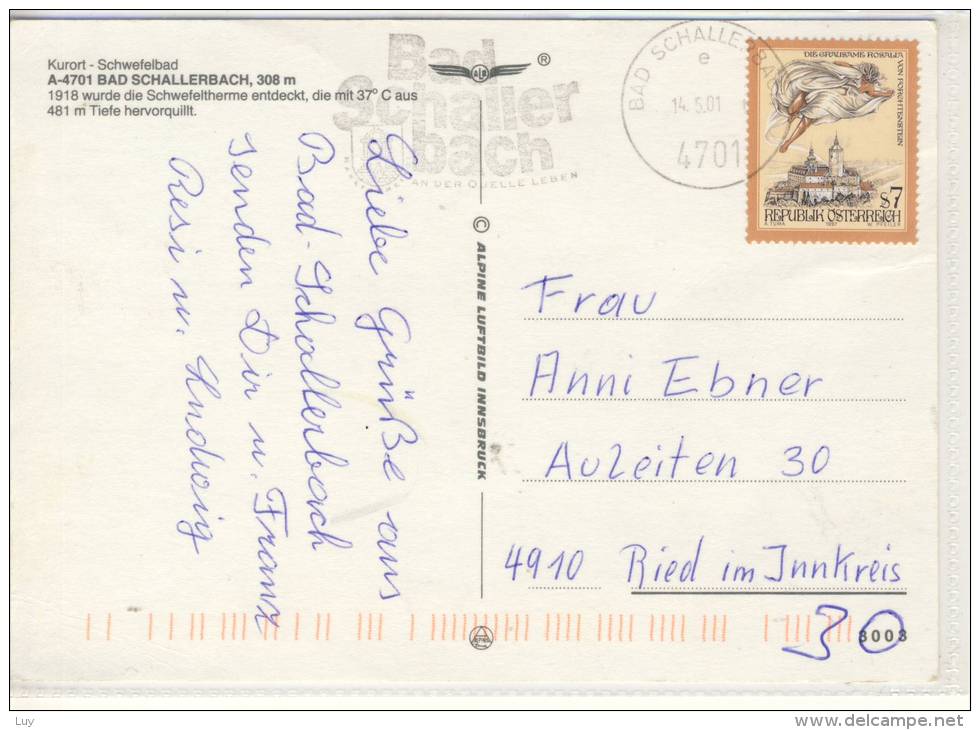 Kurort - Schwefelbad
A-4701 BAD SCHALLERBACH, 308 m
1918 wurde die Schwefeltherme entdeckt, die mit 37° C aus
481 m Tiefe hervorquillt.
®
Bad
Schaller
bach
AN DER QUELLE LEBEN
BAD SCHALLERBA
e
14.5.01
4701
DIE GRAUSAME ROSALIA VON FORCHTENSTEIN
S7
REPUBLIK ÖSTERREICH
A.TUMA 1997 W. PFEILER
Liebe Grüße aus
Bad-Schallerbach
senden Dir u. Franz
Resi u. Hudwig
© ALPINE LUFTBILD INNSBRUCK
Frau
Anni Ebner
Auzeiten 30
4910 Ried im Innkreis
30
3003
Luy
delcampe.net